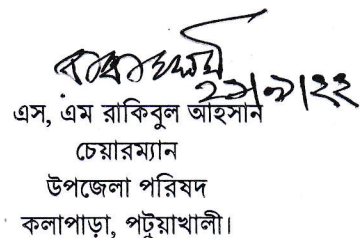 ২১/৯/২২
এস, এম রাকিবুল আহসান
চেয়ারম্যান
উপজেলা পরিষদ
কলাপাড়া, পটুয়াখালী।